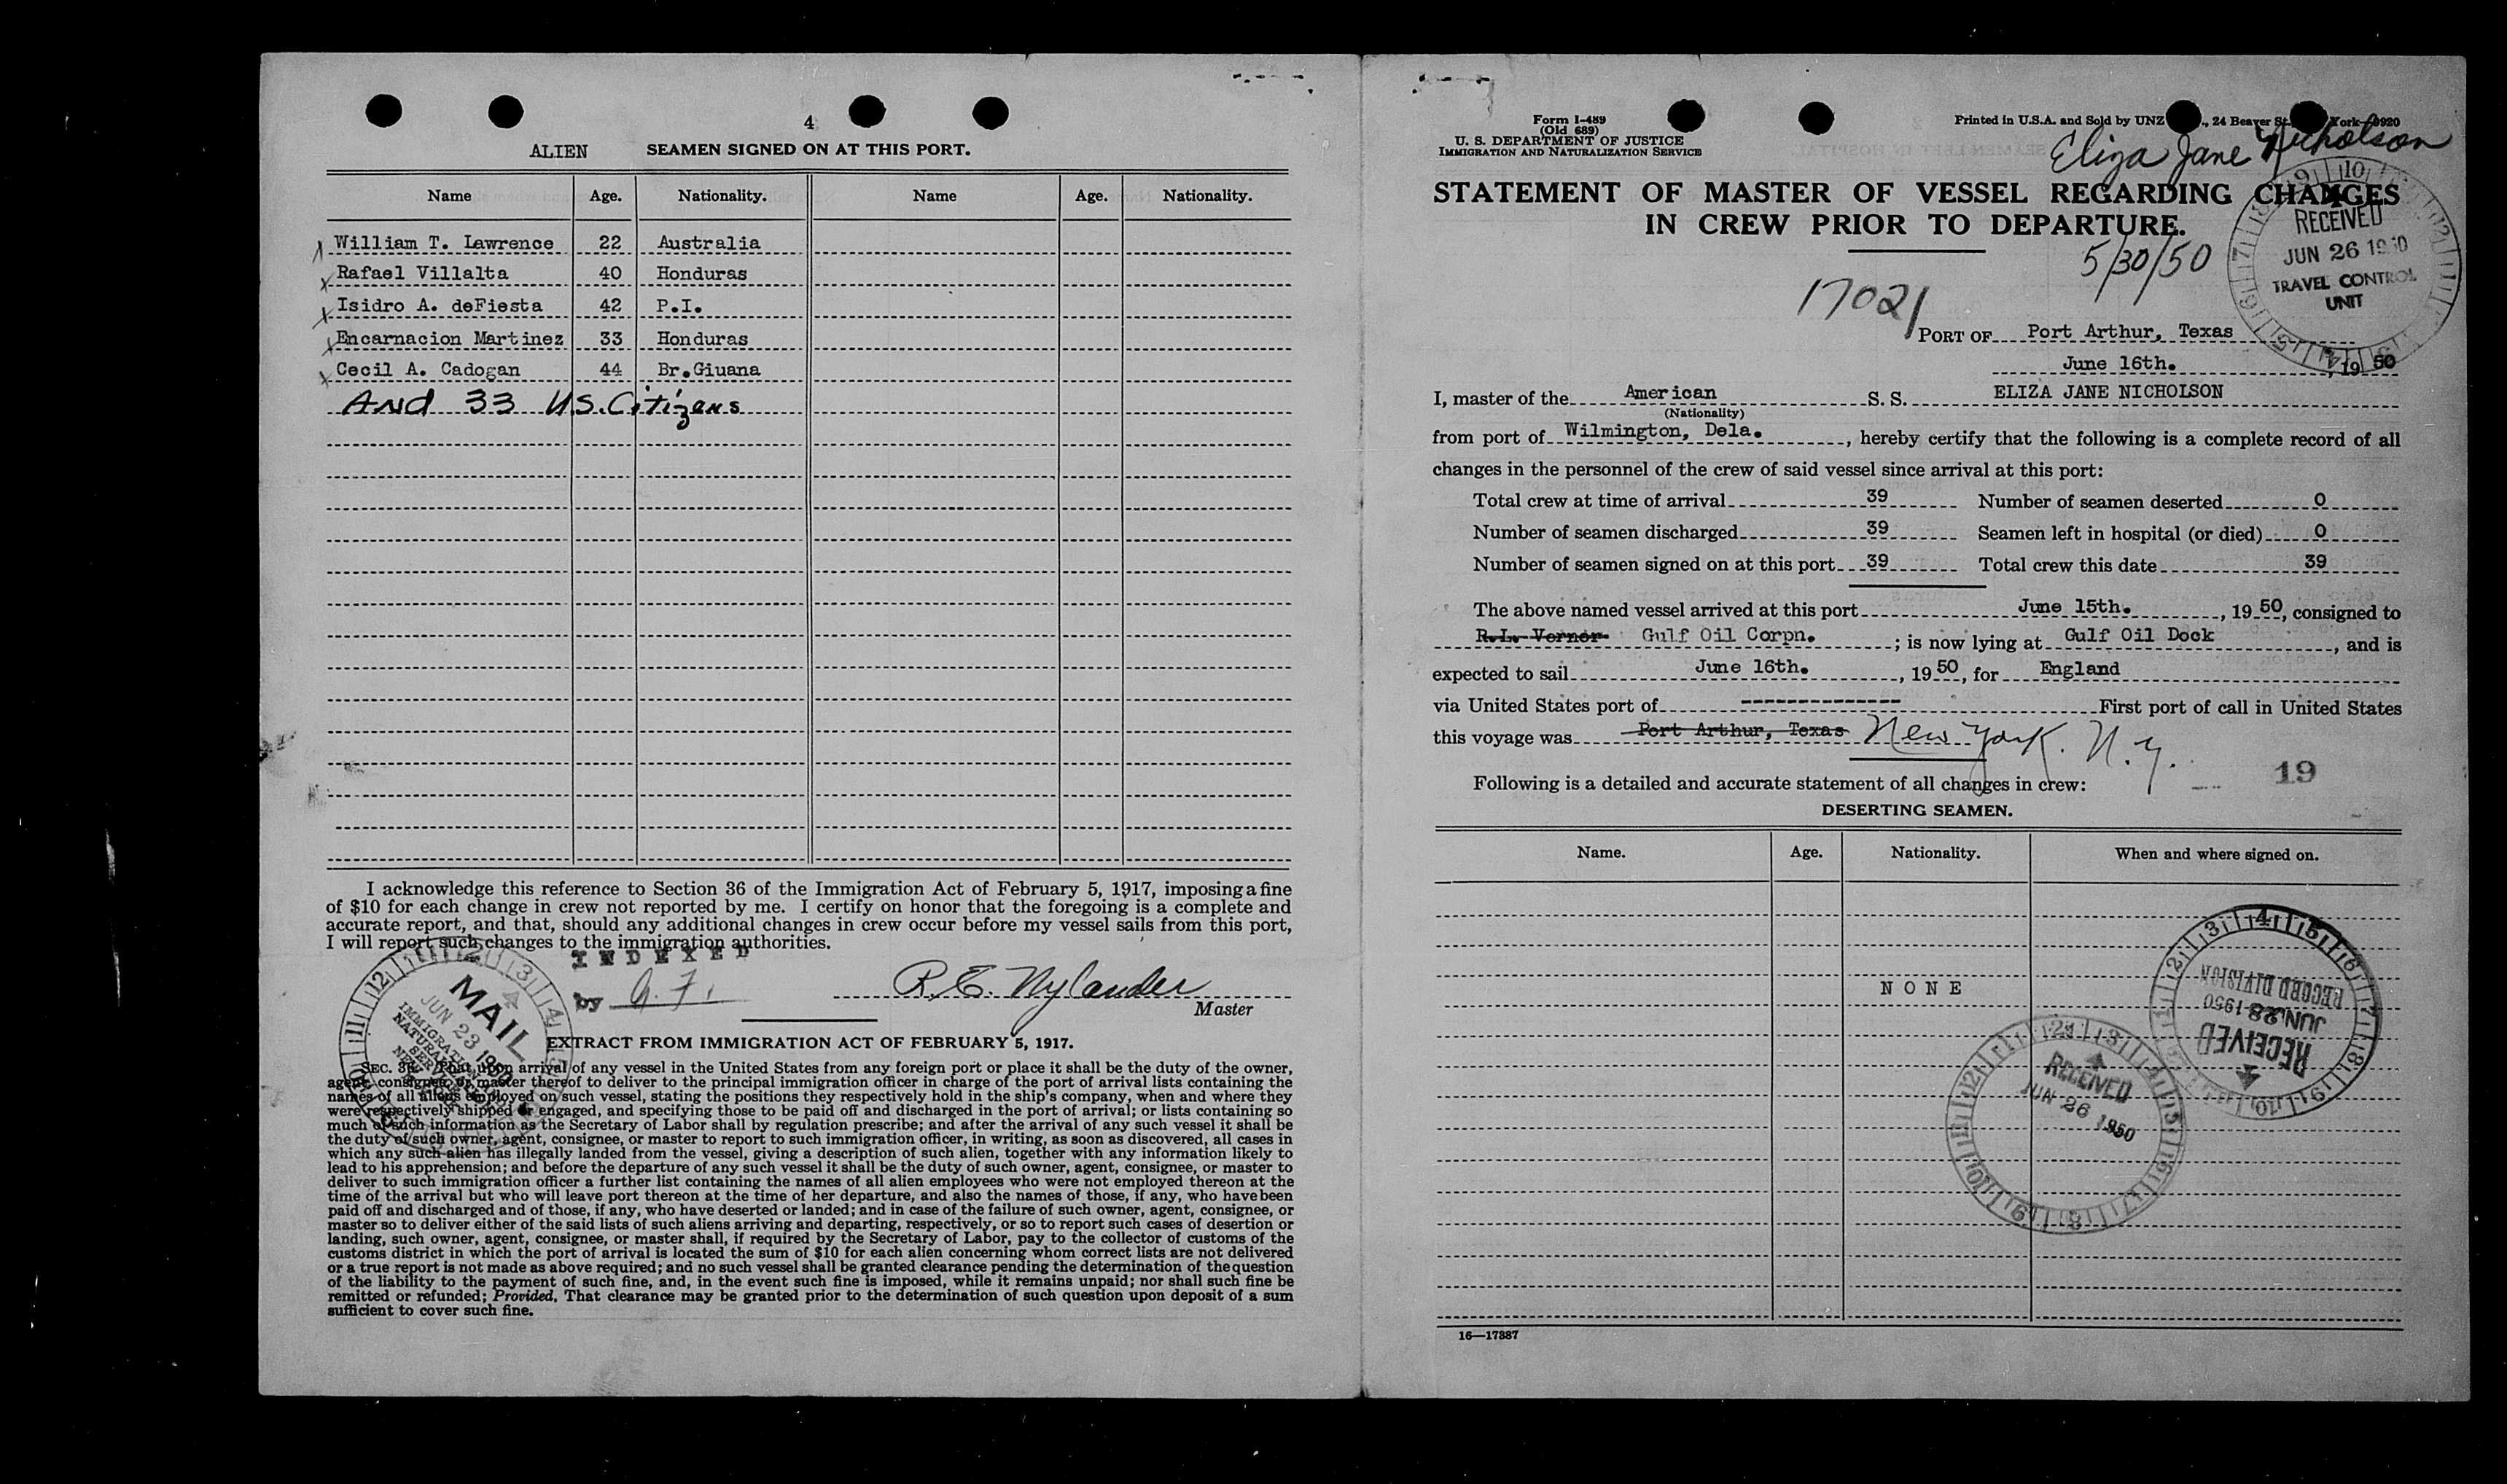 4
ALIEN SEAMEN SIGNED ON AT THIS PORT.
Name Age. Nationality. Name Age. Nationality.
William T. Lawrence 22 Australia
Rafael Villalta 40 Honduras
Isidro A. deFiesta 42 P.I.
Encarnacion Martinez 33 Honduras
Cecil A. Cadogan 44 Br.Giuana
And 33 U.S. Citizens
I acknowledge this reference to Section 36 of the Immigration Act of February 5, 1917, imposing a fine
of $10 for each change in crew not reported by me. I certify on honor that the foregoing is a complete and
accurate report, and that, should any additional changes in crew occur before my vessel sails from this port,
I will report such changes to the immigration authorities.
INDEXED
by a. f.
R.E. Nylander
Master
MAIL
JUN 23 1950
IMMIGRATION
NATURALIZATION
SERVICE
EXTRACT FROM IMMIGRATION ACT OF FEBRUARY 5, 1917.
SEC. 36. That upon arrival of any vessel in the United States from any foreign port or place it shall be the duty of the owner,
agent, consignee, or master thereof to deliver to the principal immigration officer in charge of the port of arrival lists containing the
names of all aliens employed on such vessel, stating the positions they respectively hold in the ship's company, when and where they
were respectively shipped or engaged, and specifying those to be paid off and discharged in the port of arrival; or lists containing so
much of such information as the Secretary of Labor shall by regulation prescribe; and after the arrival of any such vessel it shall be
the duty of such owner, agent, consignee, or master to report to such immigration officer, in writing, as soon as discovered, all cases in
which any such alien has illegally landed from the vessel, giving a description of such alien, together with any information likely to
lead to his apprehension; and before the departure of any such vessel it shall be the duty of such owner, agent, consignee, or master to
deliver to such immigration officer a further list containing the names of all alien employees who were not employed thereon at the
time of the arrival but who will leave port thereon at the time of her departure, and also the names of those, if any, who have been
paid off and discharged and of those, if any, who have deserted or landed; and in case of the failure of such owner, agent, consignee, or
master so to deliver either of the said lists of such aliens arriving and departing, respectively, or so to report such cases of desertion or
landing, such owner, agent, consignee, or master shall, if required by the Secretary of Labor, pay to the collector of customs of the
customs district in which the port of arrival is located the sum of $10 for each alien concerning whom correct lists are not delivered
or a true report is not made as above required; and no such vessel shall be granted clearance pending the determination of the question
of the liability to the payment of such fine, and, in the event such fine is imposed, while it remains unpaid; nor shall such fine be
remitted or refunded; Provided, That clearance may be granted prior to the determination of such question upon deposit of a sum
sufficient to cover such fine.
Form I-489
(Old 689)
U. S. DEPARTMENT OF JUSTICE
IMMIGRATION AND NATURALIZATION SERVICE
Printed in U.S.A. and Sold by UNZ ., 24 Beaver St. York—9920
Eliza Jane Nicholson
STATEMENT OF MASTER OF VESSEL REGARDING CHANGES
IN CREW PRIOR TO DEPARTURE.
RECEIVED
JUN 26 1950
TRAVEL CONTROL
UNIT
5/30/50
17021
PORT OF Port Arthur, Texas
June 16th. , 19 50
I, master of the American S. S. ELIZA JANE NICHOLSON
(Nationality)
from port of Wilmington, Dela. , hereby certify that the following is a complete record of all
changes in the personnel of the crew of said vessel since arrival at this port:
Total crew at time of arrival 39 Number of seamen deserted 0
Number of seamen discharged 39 Seamen left in hospital (or died) 0
Number of seamen signed on at this port 39 Total crew this date 39
The above named vessel arrived at this port June 15th. , 19 50, consigned to
R.L. Vernor Gulf Oil Corpn. ; is now lying at Gulf Oil Dock , and is
expected to sail June 16th. , 19 50, for England
via United States port of ------------- First port of call in United States
this voyage was Port Arthur, Texas New York. N.Y.
19
Following is a detailed and accurate statement of all changes in crew:
DESERTING SEAMEN.
Name. Age. Nationality. When and where signed on.
NONE
RECEIVED
JUN 28 1950
RECORD DIVISION
RECEIVED
JUN 26 1950
16—17387